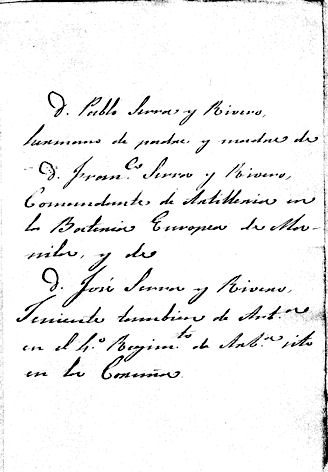 D. Pablo Serra y Rivero,
hermano de padre y madre de
D. Fran.co Serra y Rivero,
Comandante de Artilleria en
la Bateria Europea de Ma-
nila, y de
D. José Serra y Rivero,
Teniente tambien de Art.a
en el 4.o Regim.to de Art.a sito
en la Coruña